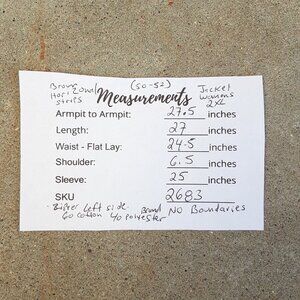 Brown (50-52) Jacket
Horizontal Womens
strips Measurements 2XL
Armpit to Armpit: 27.5 inches
Length: 27 inches
Waist - Flat Lay: 24.5 inches
Shoulder: 6.5 inches
Sleeve: 25 inches
SKU 2683
left side Brand NO Boundaries
60 cotton 40 polyester